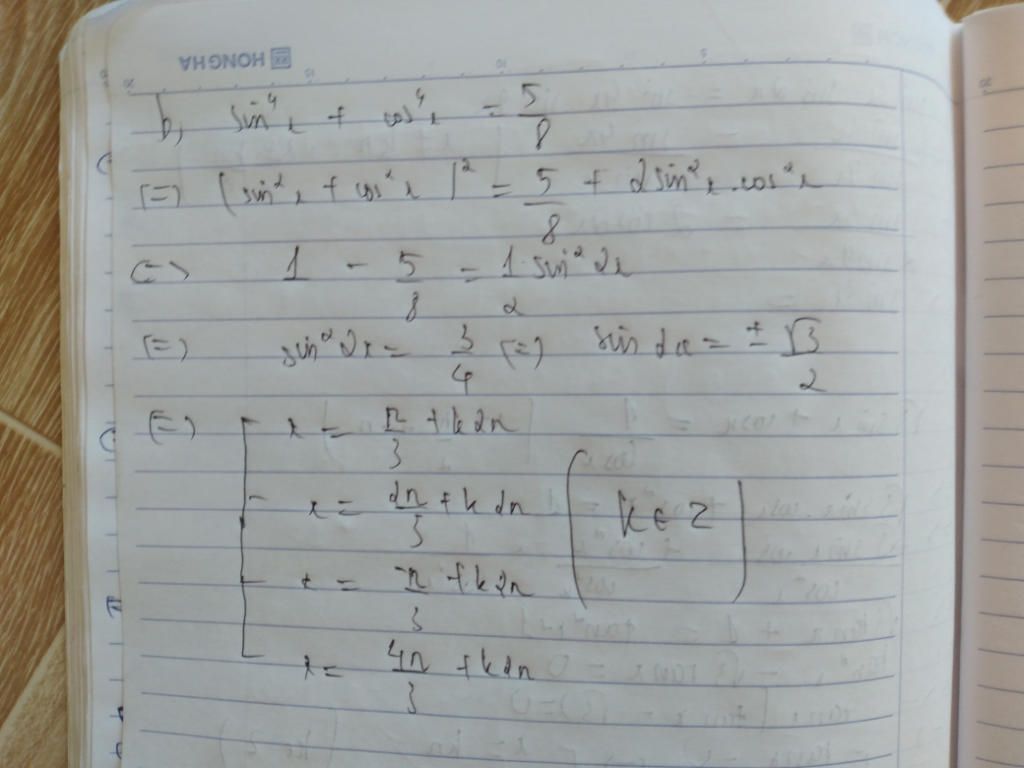 HONG HA
b, sin⁴x + cos⁴x = 5/8
(=) (sin²x + cos²x)² = 5/8 + 2sin²x.cos²x
(=) 1 - 5/8 = 1/2 sin²2x
(=) sin²2x = 3/4 (=) sin 2x = ± √3/2
(=) [ x = π/3 + k2π
x = 2π/3 + k2π (k ∈ Z)
x = -π/3 + k2π
x = 4π/3 + k2π